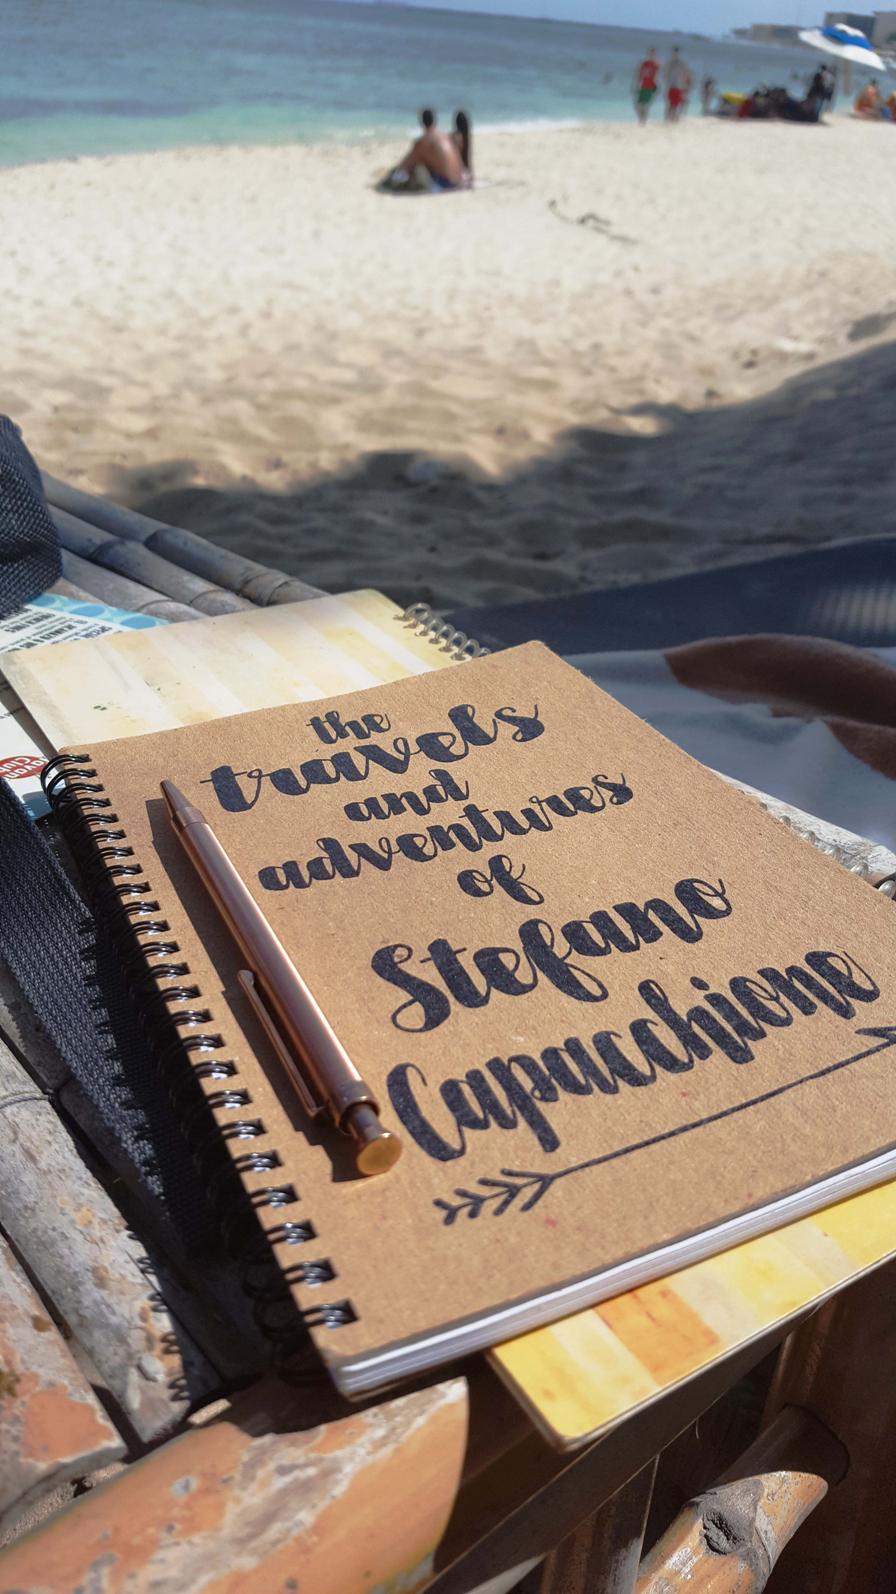 the
travels
and
adventures
of
Stefano
Capacchione